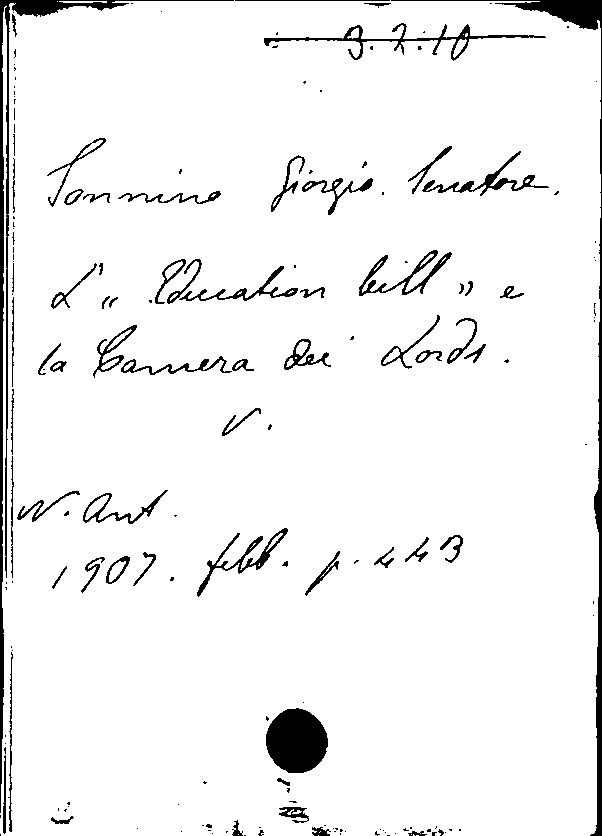 3.2.10
Sonnino Giorgio. Senatore.
L' „ Education bill „ e
la Camera dei Lords.
V.
N. Ant.
1907. febb. p. 443